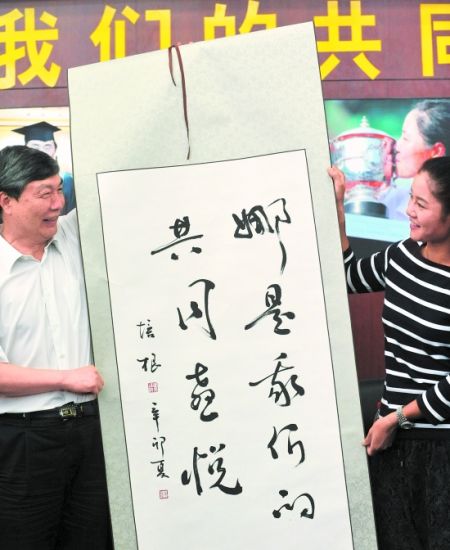 我们的共同
娜是我们的
共同喜悦
培根 辛卯夏